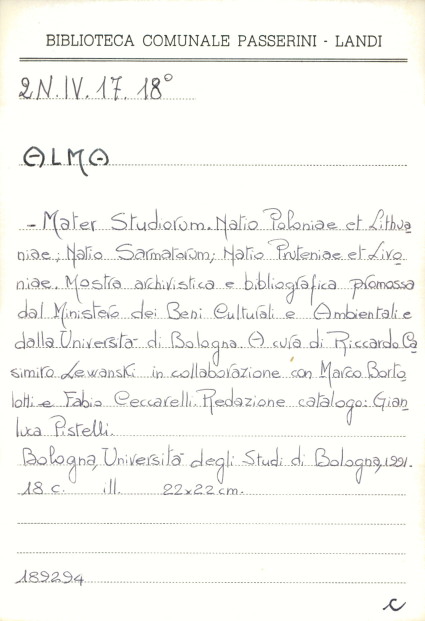 BIBLIOTECA COMUNALE PASSERINI - LANDI
2N.IV.17.18°
ALMA
- Mater Studiorum. Natio Poloniae et Lithua
niae; Natio Sarmatarum; Natio Pruteniae et Livo
niae. Mostra archivistica e bibliografica promossa
dal Ministero dei Beni Culturali e Ambientali e
dalla Università di Bologna. A cura di Riccardo Ca
simiro Lewanski in collaborazione con Marco Borto
lotti e Fabio Ceccarelli. Redazione catalogo: Gian
luca Pistelli.
Bologna, Università degli Studi di Bologna, 1991.
18 c. ill. 22x22 cm.
189294
C